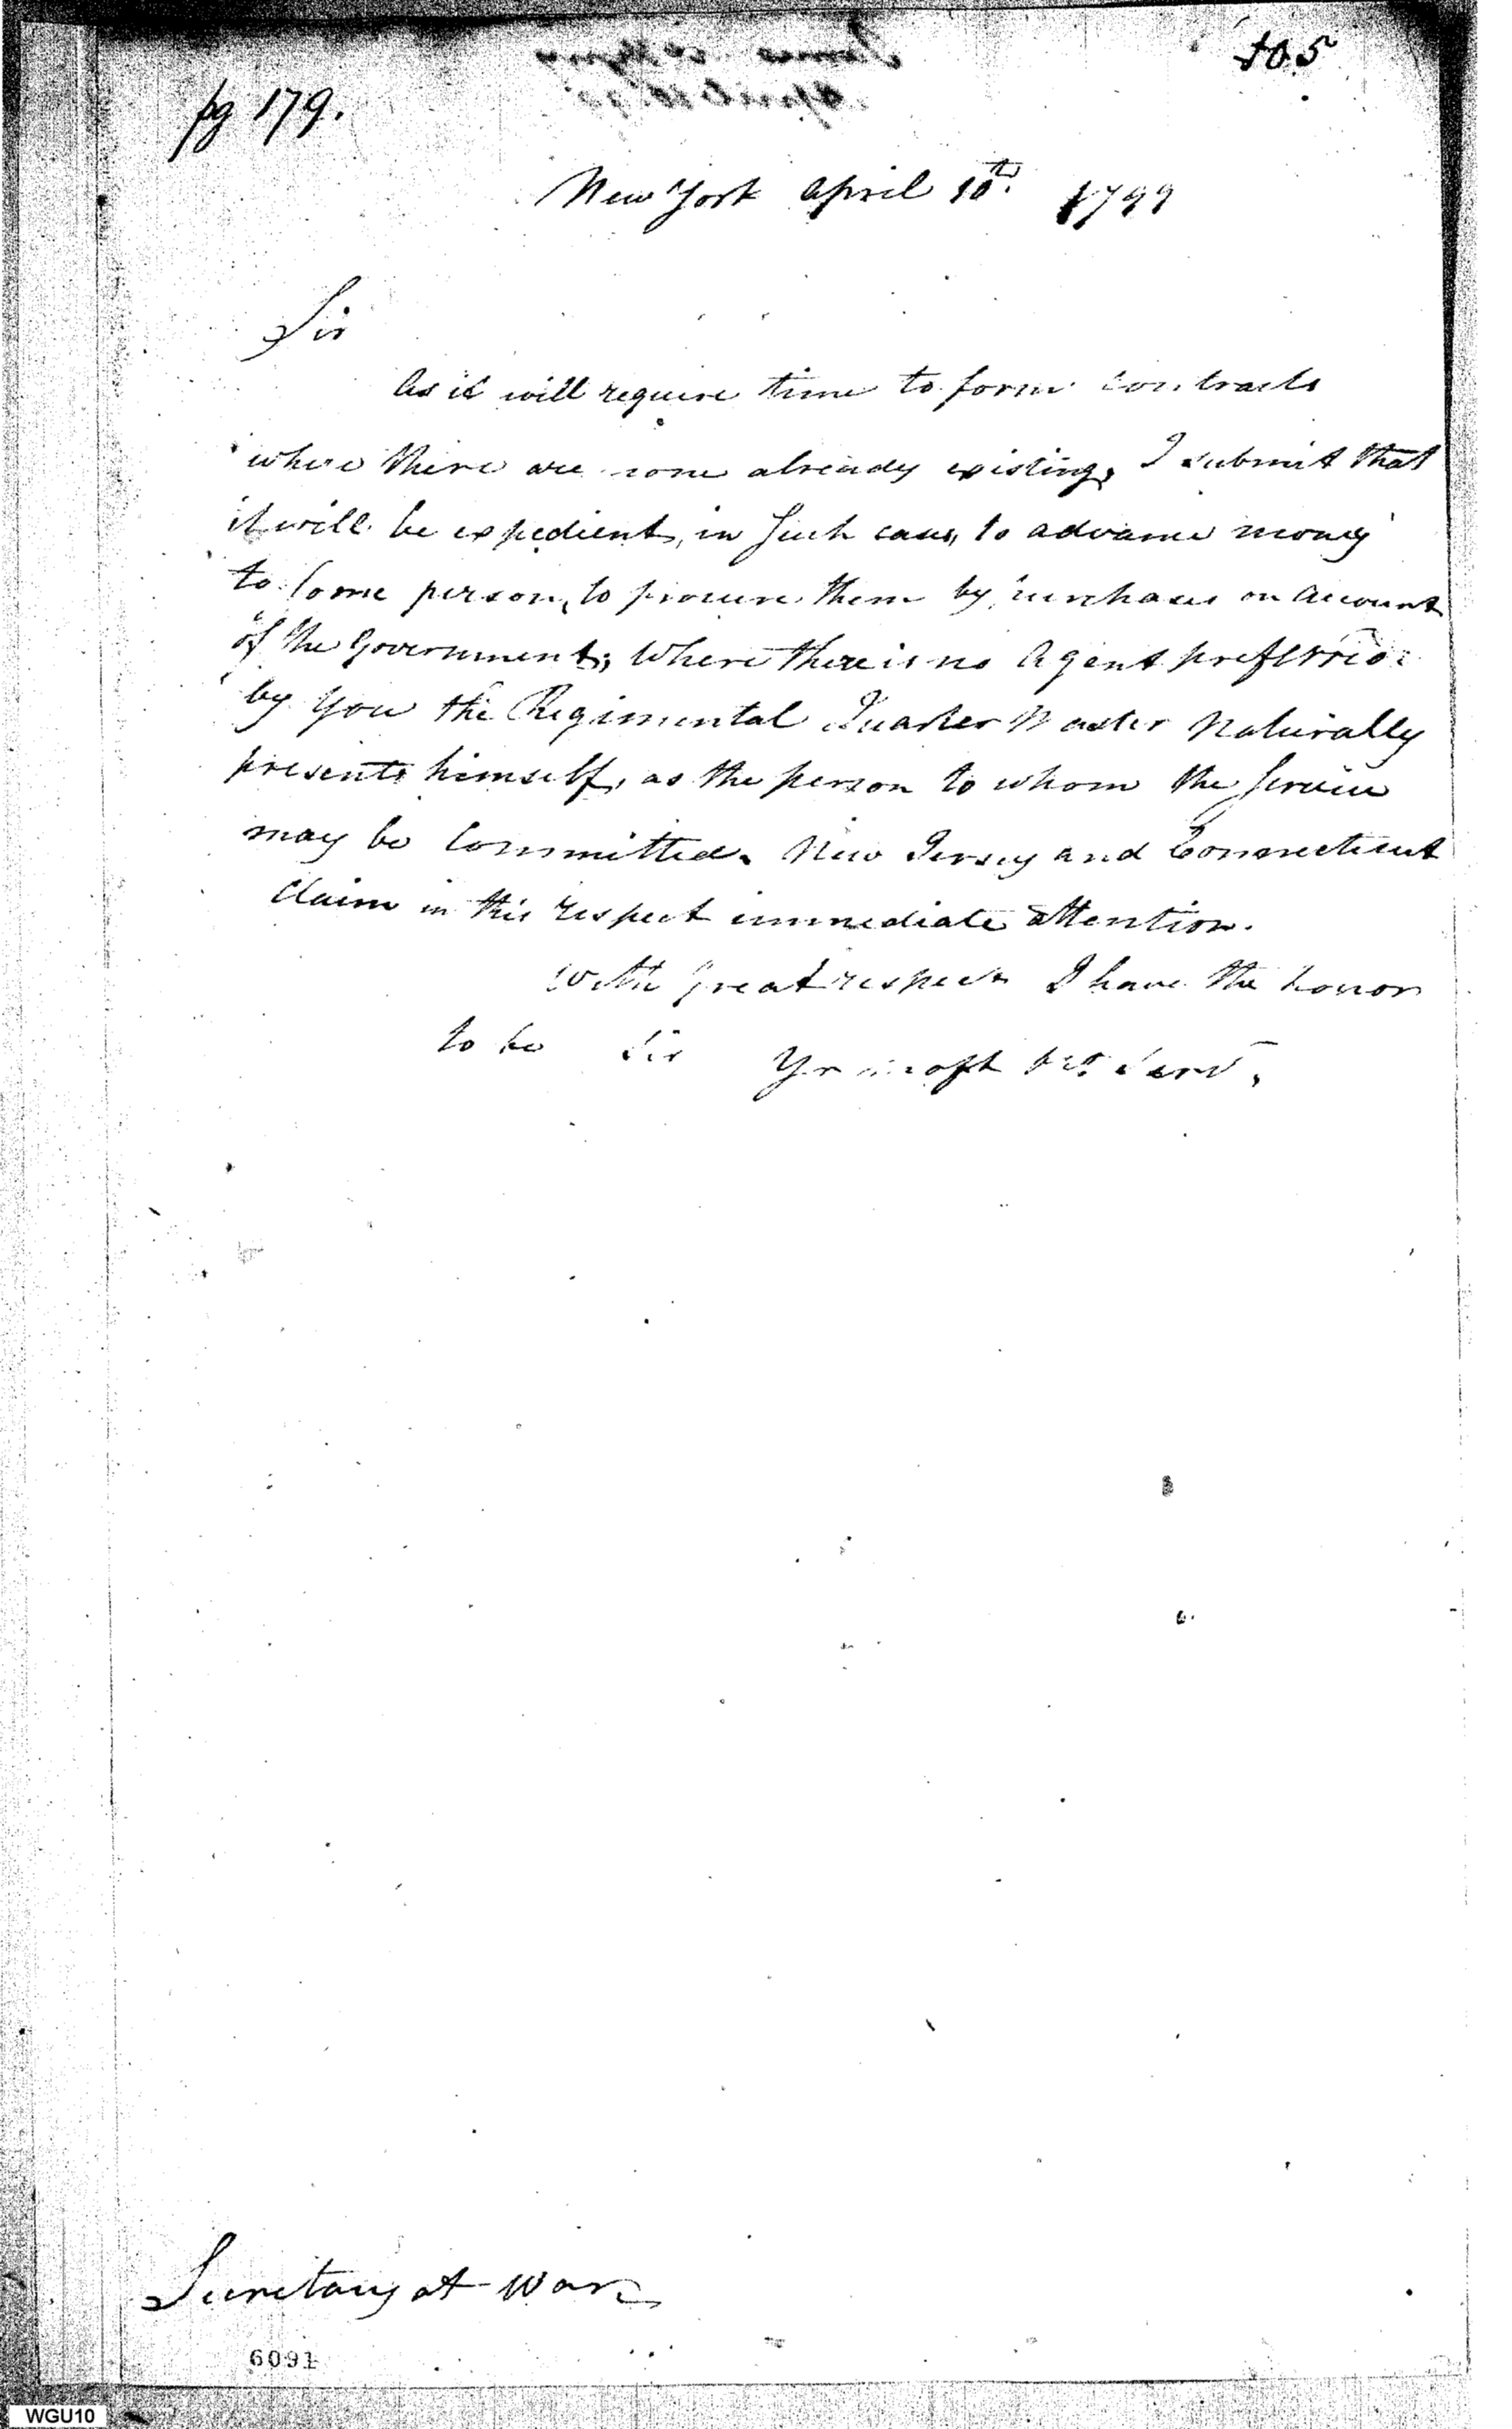 105
pg 179.
New York April 10th. 1799
Sir
As it will require time to form contracts
where there are none already existing, I submit that
it will be expedient, in such cases, to advance money
to some person, to procure them by purchases on account
of the Government; Where there is no Agent preferred
by You the Regimental Quarter Master Naturally
presents himself, as the person to whom the service
may be Committed. New Jersey and Connecticut
Claim in this respect immediate attention.
With great respect I have the honor
to be Sir Yr most obt Servt.
Secretary at War
6091
WGU10